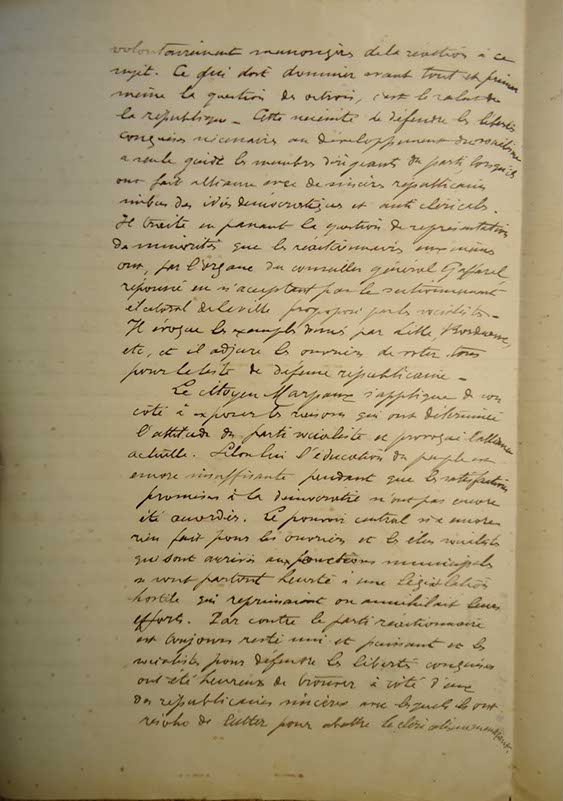 volontairement mensongères de la réaction à ce
sujet. Ce qui doit dominer avant tout et primer
même la question des octrois, c'est le salut de
la république — Cette nécessité de défendre les libertés
conquises nécessaires au développement du socialisme
a seule guidé les membres dirigeants du parti, lorsqu'ils
ont fait alliance avec de sincères républicains
imbus des idées démocratiques et anti cléricales.
Il traite en passant la question de représentation
des minorités que les réactionnaires eux-mêmes
ont, par l'organe du conseiller général Gaffarel
repoussé en n'acceptant pas le sectionnement
électoral de la ville proposé par les socialistes —
Il évoque les exemples donnés par Lille, Bordeaux,
etc, et il adjure les ouvriers de voter tous
pour la liste de défense républicaine —
Le citoyen Marpaux s'applique de son
côté à exposer les raisons qui ont déterminé
l'attitude du parti socialiste et provoqué l'alliance
actuelle. Selon lui l'éducation du peuple est
encore insuffisante pendant que les satisfactions
promises à la démocratie n'ont pas encore
été accordées. Le pouvoir central n'a encore
rien fait pour les ouvriers et les élus socialistes
qui sont arrivés aux fonctions municipales
se sont partout heurté à une législation
hostile qui reprimaient ou annihilait leurs
efforts. Par contre le parti réactionnaire
est toujours resté uni et puissant et les
socialistes pour défendre les libertés conquises
ont été heureux de trouver à côté d'eux
des républicains sincères avec lesquels ils ont
résolu de lutter pour abattre le cléricalisme